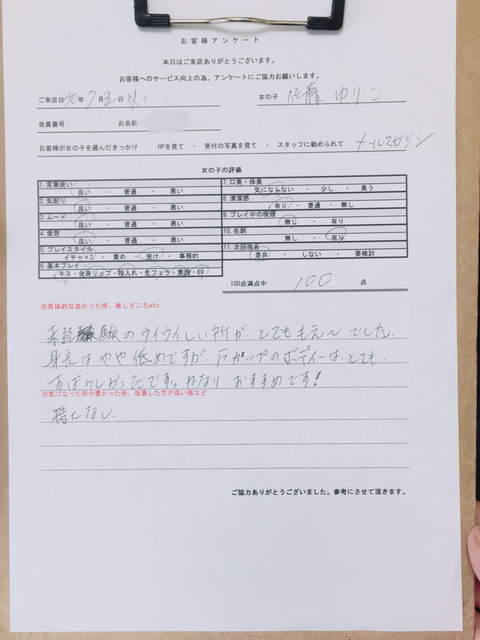 お客様アンケート
本日はご来店ありがとうございます。
お客様へのサービス向上の為、アンケートにご協力お願いします。
ご来店日 年 7月 日 ( )
女の子 佐藤 ゆりン
会員番号: お名前
お客様が女の子を選んだきっかけ HPを見て ・ 受付の写真を見て ・ スタッフに勧められて メールマガジン
女の子の評価
1. 言葉使い
良い ・ 普通 ・ 悪い
2. 気配り
良い ・ 普通 ・ 悪い
3. ムード
良い ・ 普通 ・ 悪い
4. 愛想
良い ・ 普通 ・ 悪い
5. プレイスタイル
イチャ×2 ・ 責め ・ 受け ・ 事務的
6. 基本プレイ
キス・全身リップ・指入れ・生フェラ・素股・69
7. 口臭・体臭
気にならない ・ 少し ・ 臭う
8. 清潔感
有り ・ 普通 ・ 無し
9. プレイ中の喫煙
無し ・ 有り
10. 名刺
無し ・ 有り
11. 次回指名
是非 ・ しない ・ 要検討
100点満点中 100 点
※具体的な良かった所、推しどころetc
未経験のウイウイしい所が、とてももえ〜でした。
身長はやや低めですが、Fカップのボディーは、とても
すばらしかったです。かなり、おすすめです!
※気になった所や悪かった所、改善した方が良い面など
特になし.
ご協力ありがとうございました。参考にさせて頂きます。